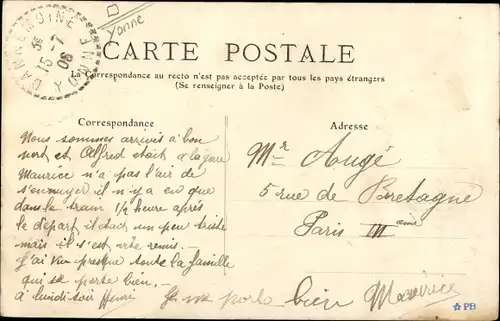 Yonne
DANNEMOINE YONNE
15 -7
08
CARTE POSTALE
La Correspondance au recto n'est pas acceptée par tous les pays étrangers
(Se renseigner à la Poste)
Correspondance
Nous sommes arrivés à bon
port et Alfred était à la gare
Maurice n'a pas l'air de
s'ennuyer il n'y a eu que
dans le train 1/2 heure après
le départ il était un peu triste
mais il s'est vite remis.
J'ai vu presque toute la famille
qui se porte bien,
à lundi soir Henri
Je me porte bien Maurice
Adresse
Mr Augé
5 rue de Bretagne
Paris III ème
PB